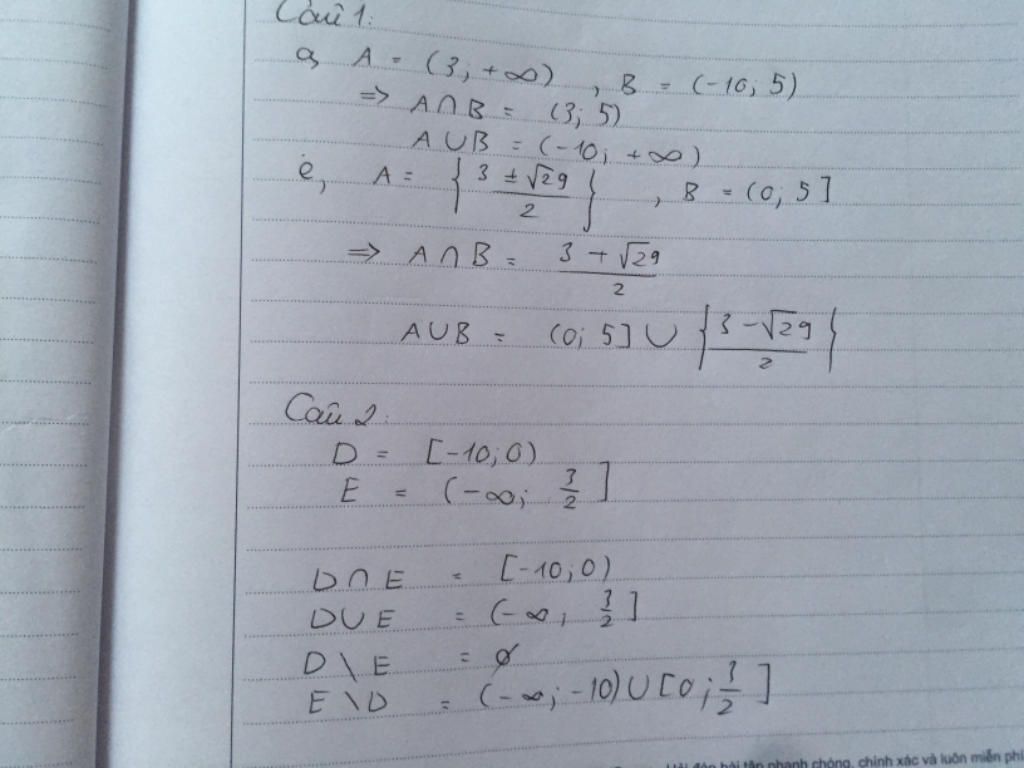 Câu 1:
a, A = (3; +∞) , B = (-10; 5)
=> A∩B = (3; 5)
A∪B = (-10; +∞)
e, A = { (3 ± √29)/2 } , B = (0; 5]
=> A∩B = (3 + √29)/2
A∪B = (0; 5] ∪ { (3 - √29)/2 }
Câu 2:
D = [-10; 0)
E = (-∞; 3/2]
D∩E = [-10; 0)
D∪E = (-∞, 3/2]
D\E = ∅
E\D = (-∞; -10) ∪ [0; 3/2]
Hỏi đáp bài tập nhanh chóng, chính xác và luôn miễn phí